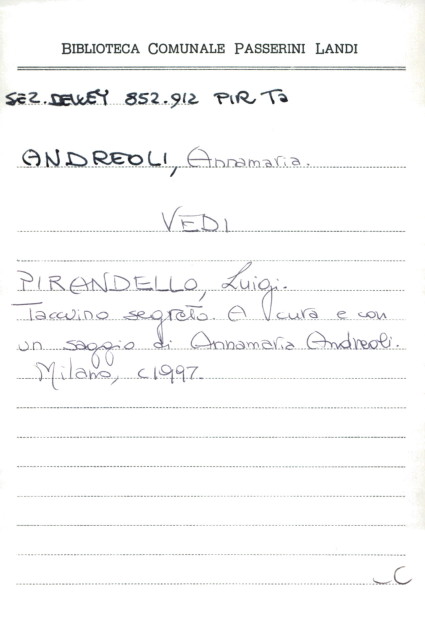 BIBLIOTECA COMUNALE PASSERINI LANDI
SEZ. DEWEY 852.912 PIR Ta
ANDREOLI, Annamaria.
VEDI
PIRANDELLO, Luigi.
Taccuino segreto. A cura e con
un saggio di Annamaria Andreoli.
Milano, c1997.